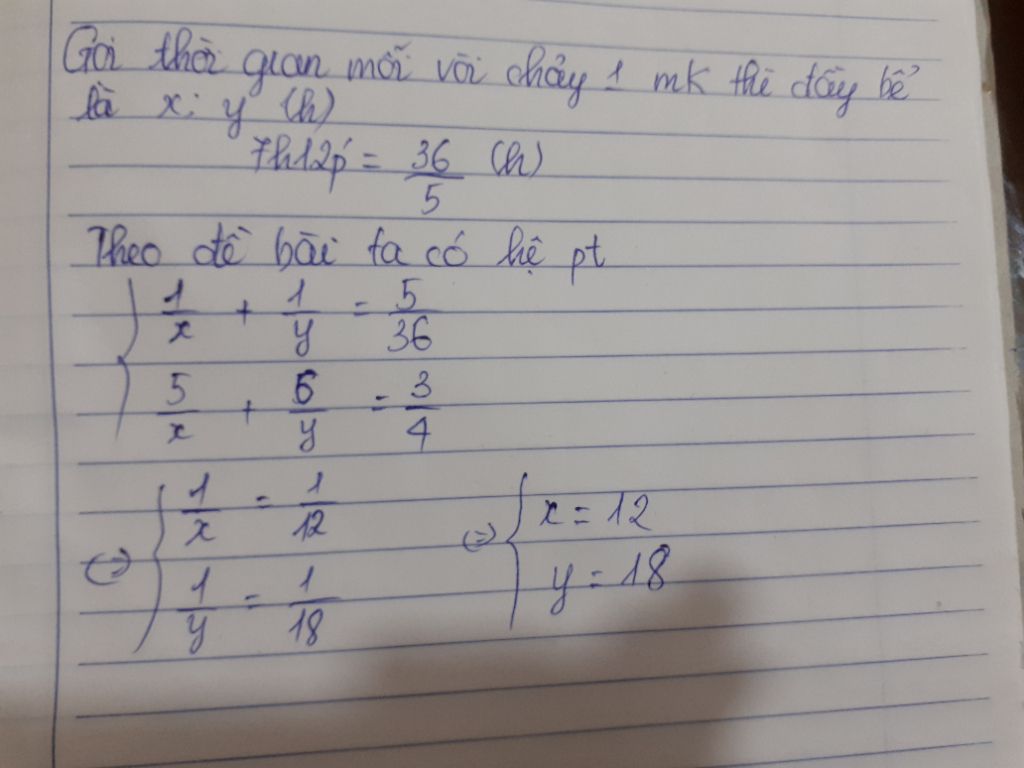 Gọi thời gian mỗi vòi chảy 1 mk thì đầy bể
là x; y (h)
7h12p' = 36/5 (h)
Theo đề bài ta có hệ pt
{ 1/x + 1/y = 5/36
5/x + 6/y = 3/4
<=> { 1/x = 1/12 <=> { x = 12
1/y = 1/18 y = 18